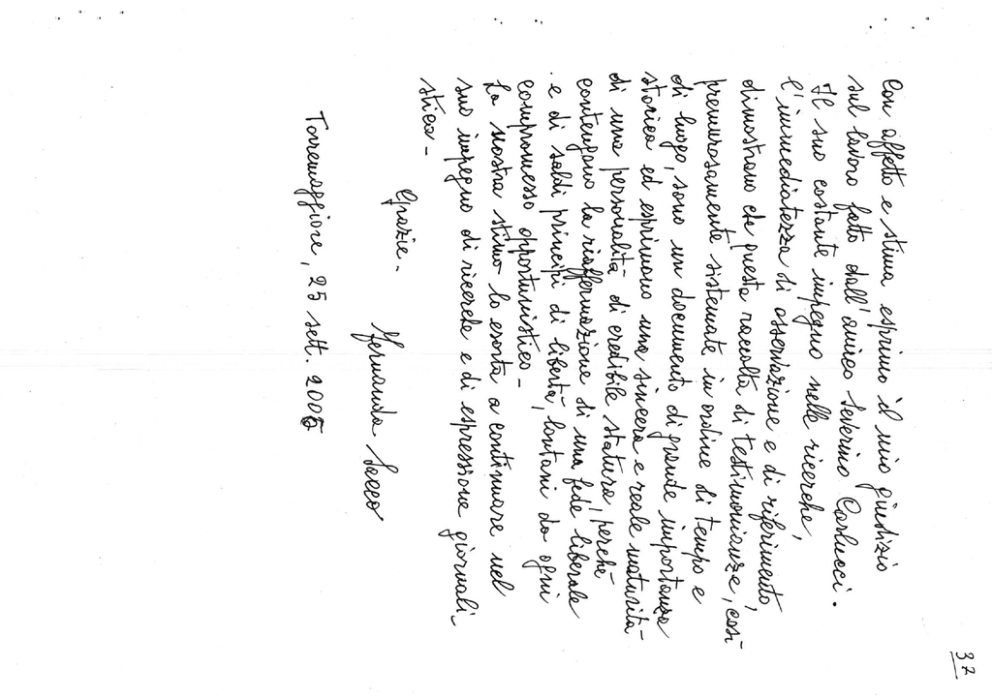 Con affetto e stima esprimo il mio giudizio
sul lavoro fatto dall'amico Severino Carlucci.
Il suo costante impegno nelle ricerche,
l'immediatezza di osservazione e di riferimento,
dimostrano che questa raccolta di testimonianze, così
premurosamente sistemate in ordine di tempo e
di luogo, sono un documento di grande importanza
storica ed esprimono una sincera e reale maturità
di una personalità di credibile statura, perchè
contengono la riaffermazione di una fede liberale
e di saldi principi di libertà, lontani da ogni
compromesso opportunistico -
La nostra stima lo esorta a continuare nel
suo impegno di ricerche e di espressione giornali-
stica -
Grazie -
Fernanda Sacco
Torremaggiore, 25 sett. 2005
37